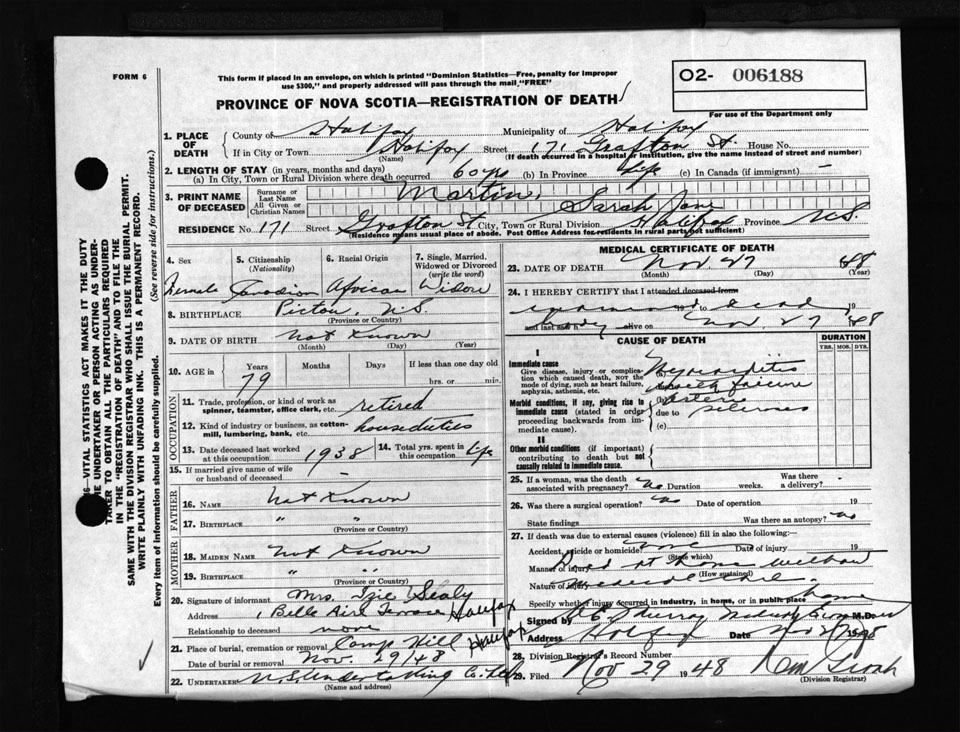 FORM 6
This form if placed in an envelope, on which is printed "Dominion Statistics—Free, penalty for improper
use $300," and properly addressed will pass through the mail "FREE"
O2- 006188
PROVINCE OF NOVA SCOTIA—REGISTRATION OF DEATH
For use of the Department only
1. PLACE OF DEATH
County of Halifax Municipality of Halifax
If in City or Town Halifax Street 171 Grafton St. House No.
(Name) (If death occurred in a hospital or institution, give the name instead of street and number)
2. LENGTH OF STAY (in years, months and days)
(a) In City, Town or Rural Division where death occurred 60 yrs (b) In Province life (c) In Canada (if immigrant) -
3. PRINT NAME OF DECEASED
Surname or Last Name Martin,
All Given or Christian Names Sarah Jane
RESIDENCE No. 171 Street Grafton St City, Town or Rural Division Halifax Province N.S.
(Residence means usual place of abode. Post Office Address for residents in rural parts not sufficient)
4. Sex Female
5. Citizenship (Nationality) Canadian
6. Racial Origin African
7. Single, Married, Widowed or Divorced (write the word) Widow
8. BIRTHPLACE Pictou, N.S.
(Province or Country)
9. DATE OF BIRTH Not Known
(Month) (Day) (Year)
10. AGE in Years 79 Months Days If less than one day old
hrs. or min.
OCCUPATION
11. Trade, profession, or kind of work as spinner, teamster, office clerk, etc. retired
12. Kind of industry or business, as cotton-mill, lumbering, bank, etc. house duties
13. Date deceased last worked at this occupation 1938
14. Total yrs. spent in this occupation life
15. If married give name of wife or husband of deceased -
FATHER
16. NAME Not Known
17. BIRTHPLACE " "
(Province or Country)
MOTHER
18. MAIDEN NAME Not Known
19. BIRTHPLACE " "
(Province or Country)
20. Signature of informant Mrs. Izie Sealy
Address 1 Belle Aire Terrace Halifax
Relationship to deceased none
21. Place of burial, cremation or removal Camp Hill Halifax
Date of burial or removal Nov. 29/48
22. UNDERTAKER N.S. Undertaking Co. Ltd
(Name and address)
MEDICAL CERTIFICATE OF DEATH
23. DATE OF DEATH Nov. 27 48
(Month) (Day) (Year)
24. I HEREBY CERTIFY that I attended deceased from
19
and last saw alive on Nov 27 1948
CAUSE OF DEATH
DURATION
YRS. MOS. DYS.
I
Immediate cause
Give disease, injury or complication which caused death, NOT the mode of dying, such as heart failure, asphyxia, asthenia, etc.
(a) Myocarditis
failure
Morbid conditions, if any, giving rise to immediate cause (stated in order proceeding backwards from immediate cause).
due to sclerosis
(c)
II
Other morbid conditions (if important) contributing to death but not causally related to immediate cause.
25. If a woman, was the death associated with pregnancy? No Duration weeks. Was there a delivery? -
26. Was there a surgical operation? No Date of operation 19
State findings Was there an autopsy? No
27. If death was due to external causes (violence) fill in also the following:—
Accident, suicide or homicide? Date of injury 19
(State which)
Manner of injury Dead at home without
(How sustained)
Nature of injury medical care
Specify whether injury occurred in industry, in home, or in public place home
Signed by M.D.
Address Halifax Date Nov 19 48
28. Division Registrar's Record Number
29. Filed Nov 29 1948
(Division Registrar)
VITAL STATISTICS ACT MAKES IT THE DUTY
THE UNDERTAKER OR PERSON ACTING AS UNDER-
TAKER TO OBTAIN ALL THE PARTICULARS REQUIRED
IN THE "REGISTRATION OF DEATH" AND TO FILE THE
SAME WITH THE DIVISION REGISTRAR WHO SHALL ISSUE THE BURIAL PERMIT.
WRITE PLAINLY WITH UNFADING INK. THIS IS A PERMANENT RECORD.
Every item of information should be carefully supplied. (See reverse side for instructions.)